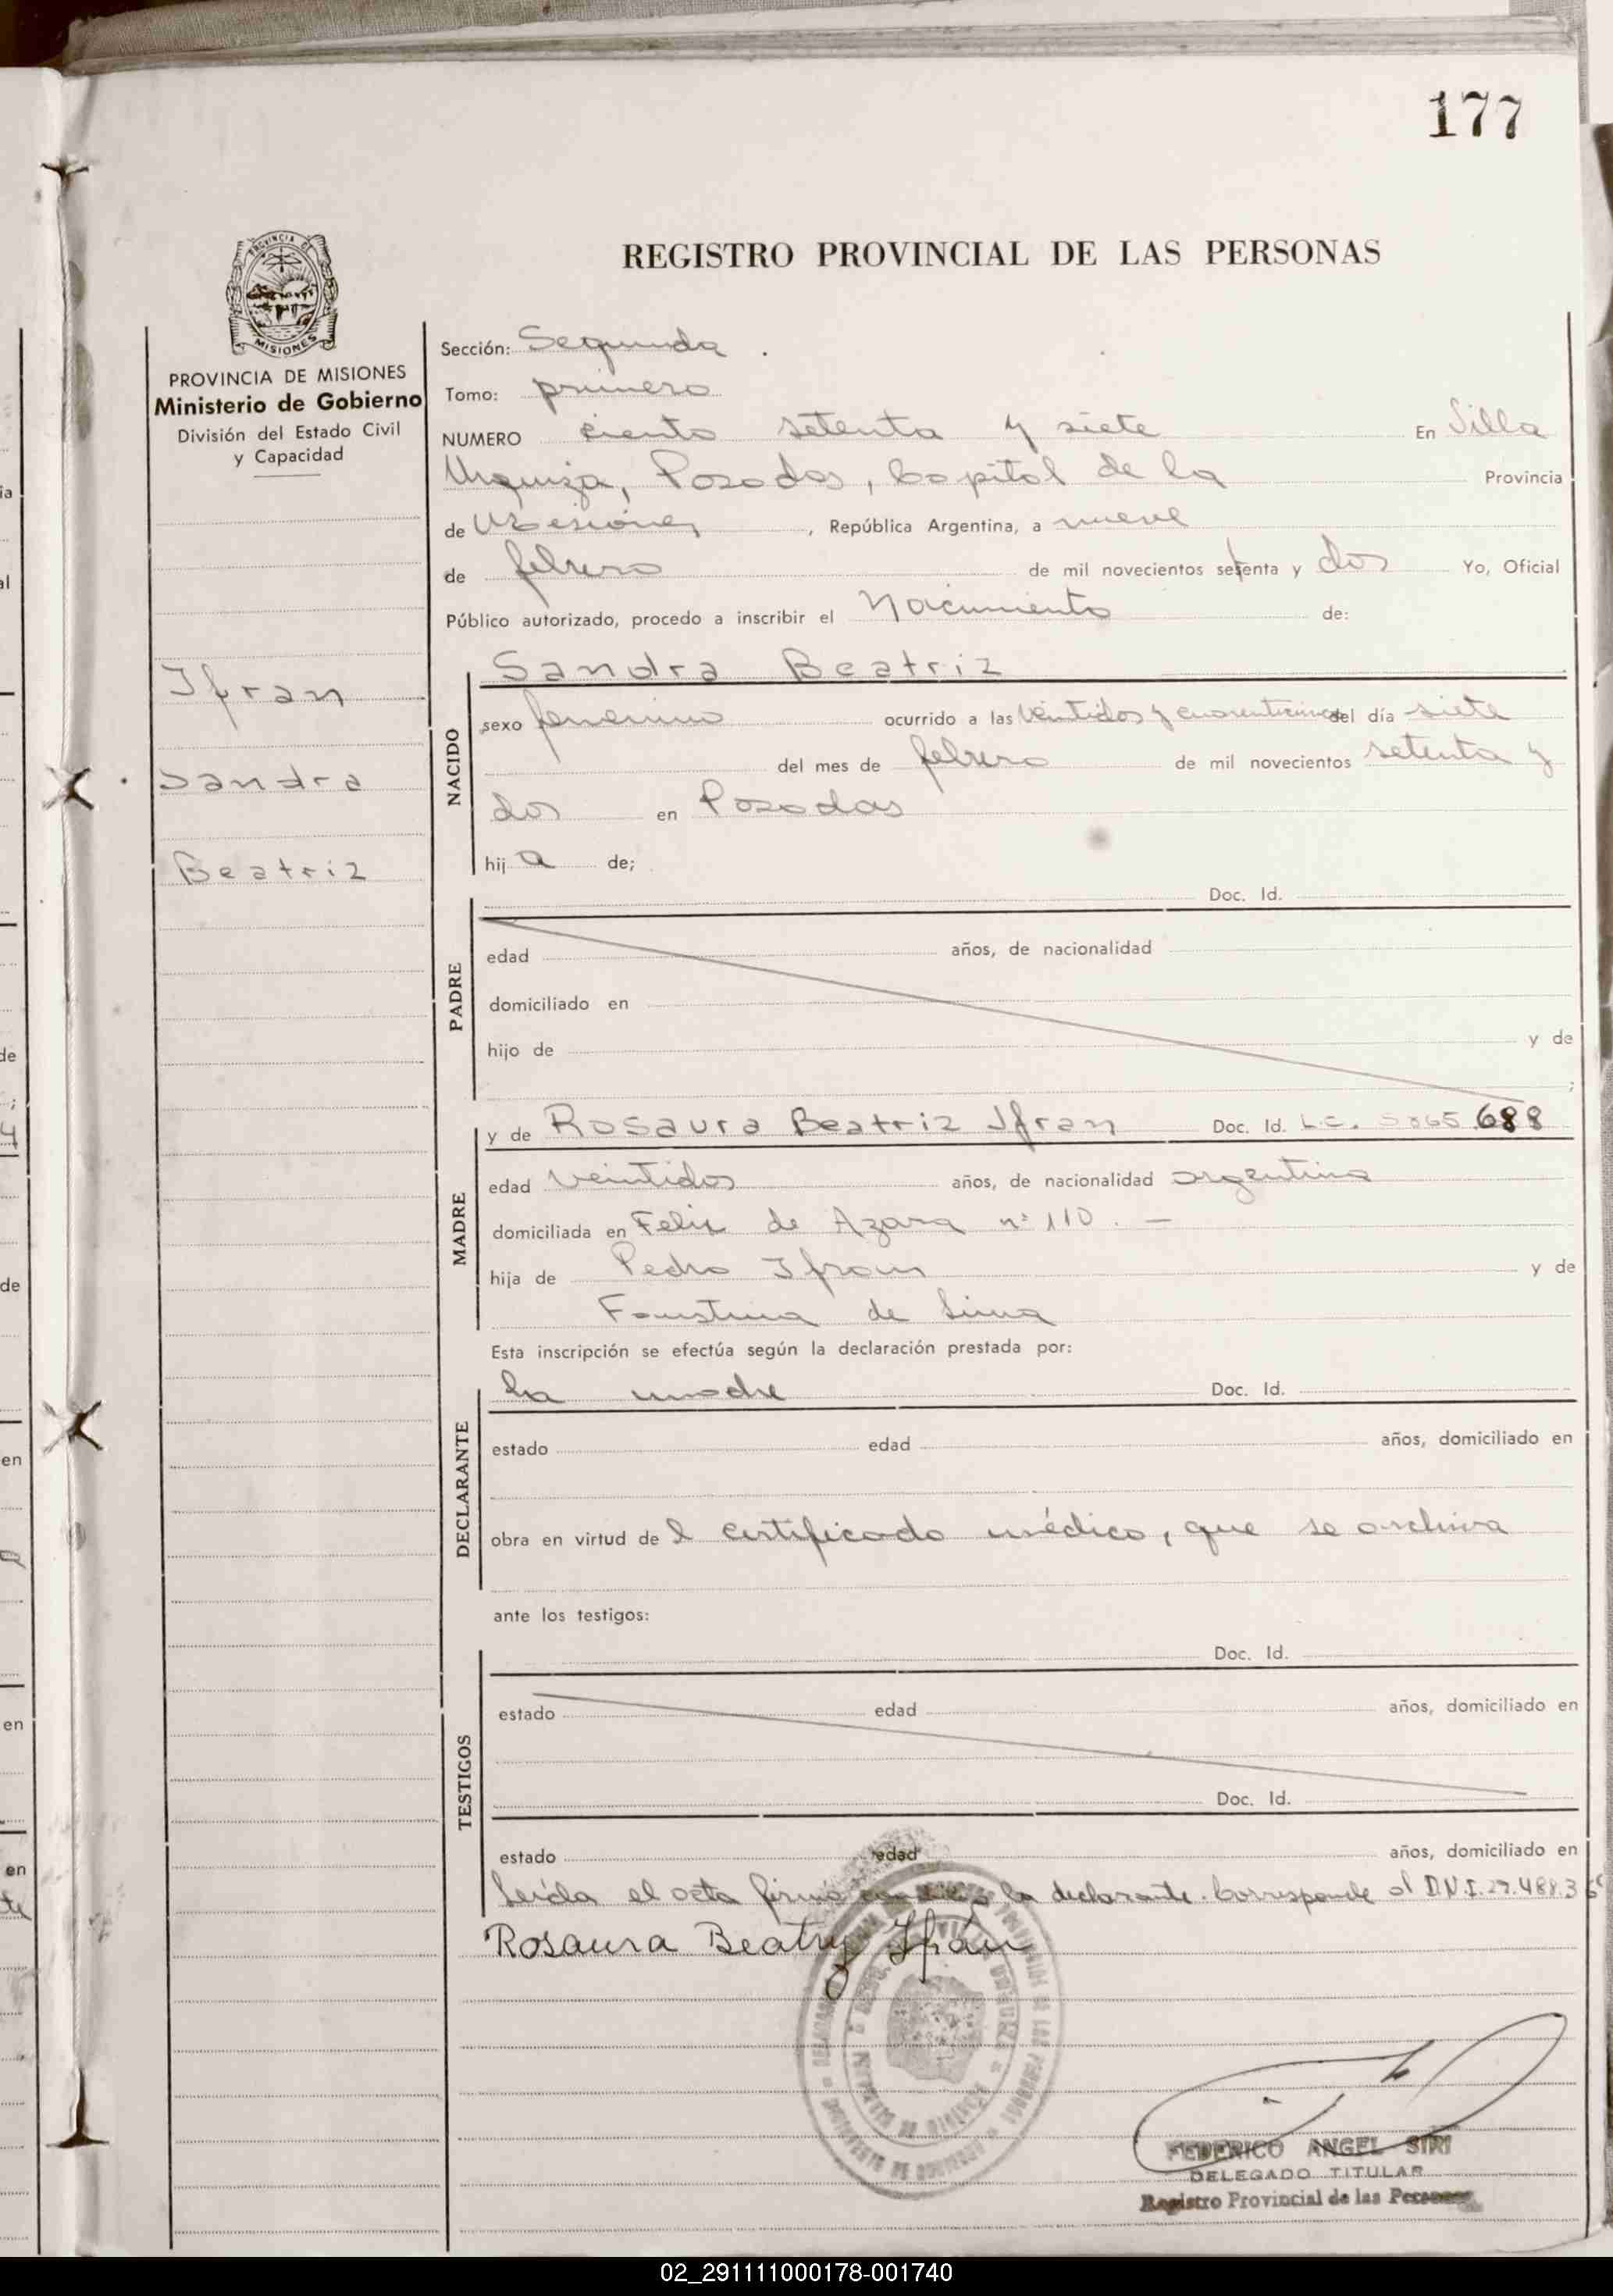 177
REGISTRO PROVINCIAL DE LAS PERSONAS
PROVINCIA DE MISIONES
Ministerio de Gobierno
División del Estado Civil
y Capacidad
Ifran
Sandra
Beatriz
Sección: Segunda
Tomo: primero
NUMERO ciento setenta y siete En Villa
Urquiza, Posadas, Capital de la Provincia
de Misiones, República Argentina, a nueve
de febrero de mil novecientos setenta y dos Yo, Oficial
Público autorizado, procedo a inscribir el Nacimiento de:
Sandra Beatriz
NACIDO
sexo femenino ocurrido a las veintidos y cuarenticinco del día siete
del mes de febrero de mil novecientos setenta y
dos en Posadas
hija de;
PADRE
Doc. Id.
edad años, de nacionalidad
domiciliado en
hijo de y de
;
MADRE
y de Rosaura Beatriz Ifran Doc. Id. L.C. 688
edad veintidos años, de nacionalidad argentina
domiciliada en Felix de Azara nº 110. —
hija de Pedro Ifran y de
Faustina de Lima
Esta inscripción se efectúa según la declaración prestada por:
DECLARANTE
la madre Doc. Id.
estado edad años, domiciliado en
obra en virtud del certificado médico, que se archiva
ante los testigos:
TESTIGOS
Doc. Id.
estado edad años, domiciliado en
Doc. Id.
estado edad años, domiciliado en
Leída el acta firma la declarante. Corresponde al D.N.I.
Rosaura Beatriz Ifrán
FEDERICO ANGEL SIRI
DELEGADO TITULAR
Registro Provincial de las Personas
02_291111000178-001740